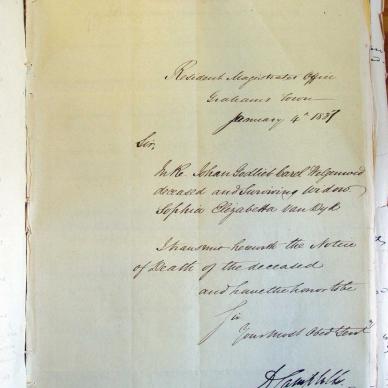 Resident Magistrates Office
Grahams Town
January 4th 18
Sir,
In Re Johan Gotlieb Carel
deceased and Surviving Widow
Sophia Elizabetta van Dyk
I transmit herewith the Notice
of Death of the deceased
and have the honor to be
Sir
Your Most Obed Servt